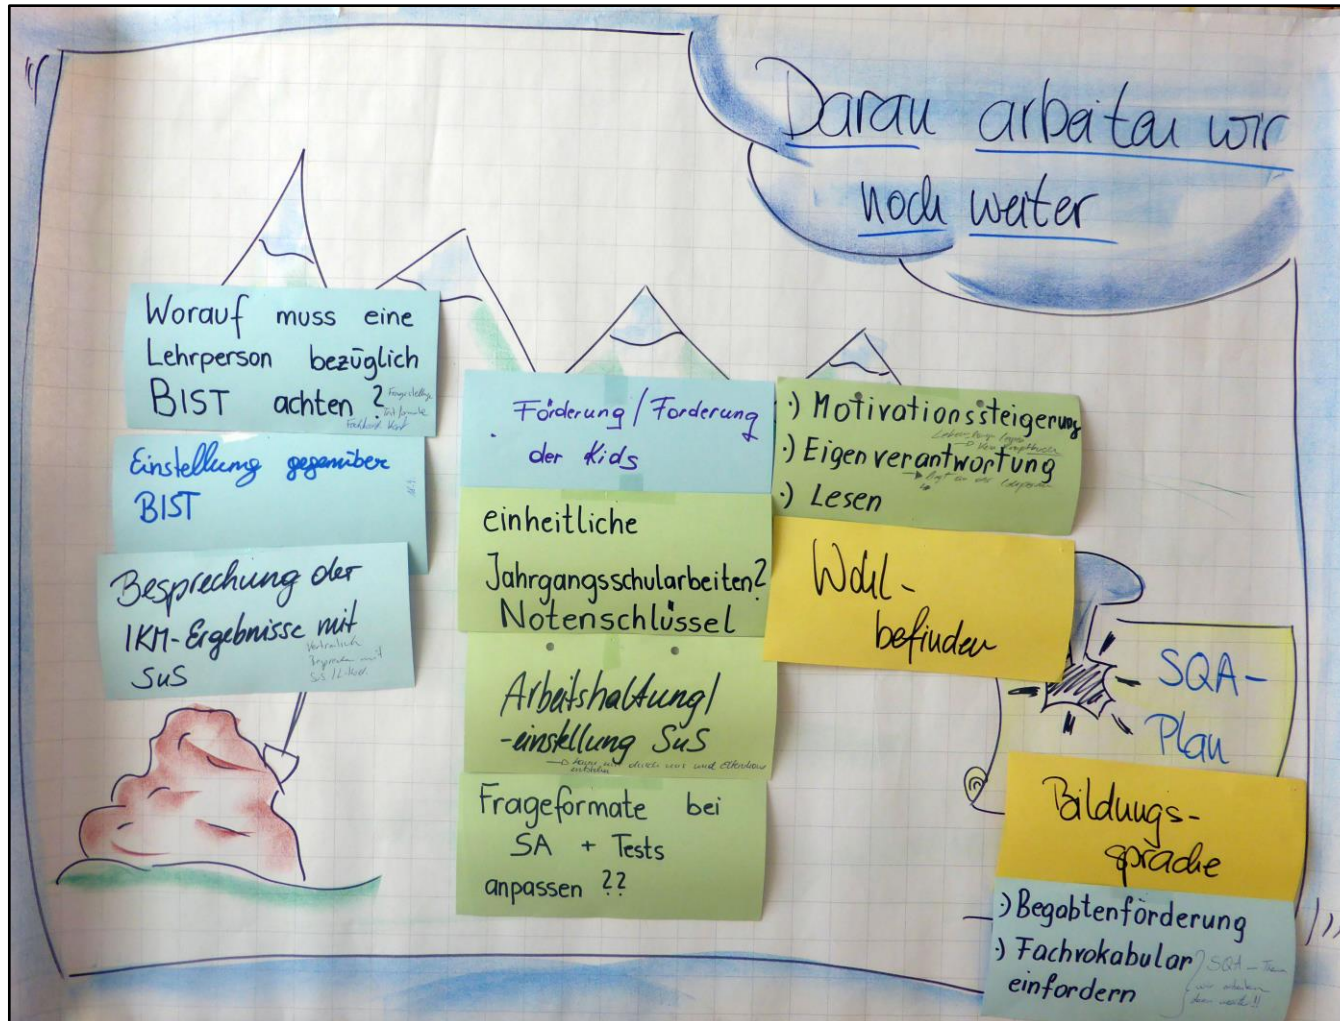 Daran arbeiten wir
noch weiter
Worauf muss eine
Lehrperson bezüglich
BIST achten?
Einstellung gegenüber
BIST
Besprechung der
IKM-Ergebnisse mit
SuS
Förderung / Forderung
der Kids
einheitliche
Jahrgangsschularbeiten?
Notenschlüssel
Arbeitshaltung/
-einstellung SuS
Frageformate bei
SA + Tests
anpassen ??
·) Motivationssteigerung
·) Eigenverantwortung
·) Lesen
Wohl-
befinden
SQA-
Plan
Bildungs-
sprache
·) Begabtenförderung
·) Fachvokabular
einfordern